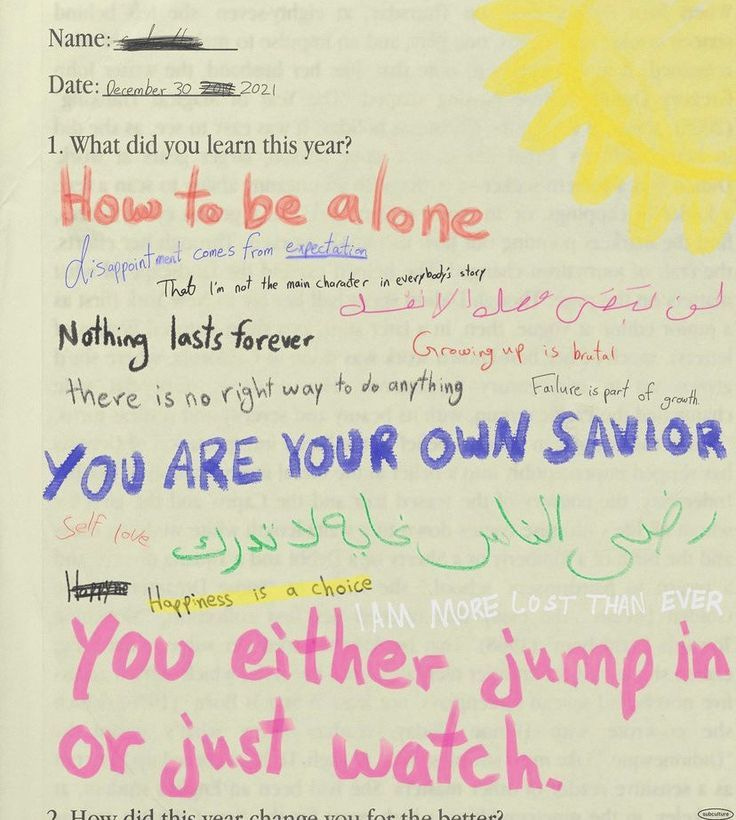 Name:
Date: December 30 2021
1. What did you learn this year?
How to be alone
disappointment comes from expectation
That I'm not the main charater in everybody's story
لن يبقى معك الا نفسك
Nothing lasts forever
Growing up is brutal
there is no right way to do anything
Failure is part of growth.
YOU ARE YOUR OWN SAVIOR
Self love
رضى الناس غاية لا تدرك
Happiness is a choice
I AM MORE LOST THAN EVER
You either jump in
or just watch.
2. How did this year change you for the better?
subculture